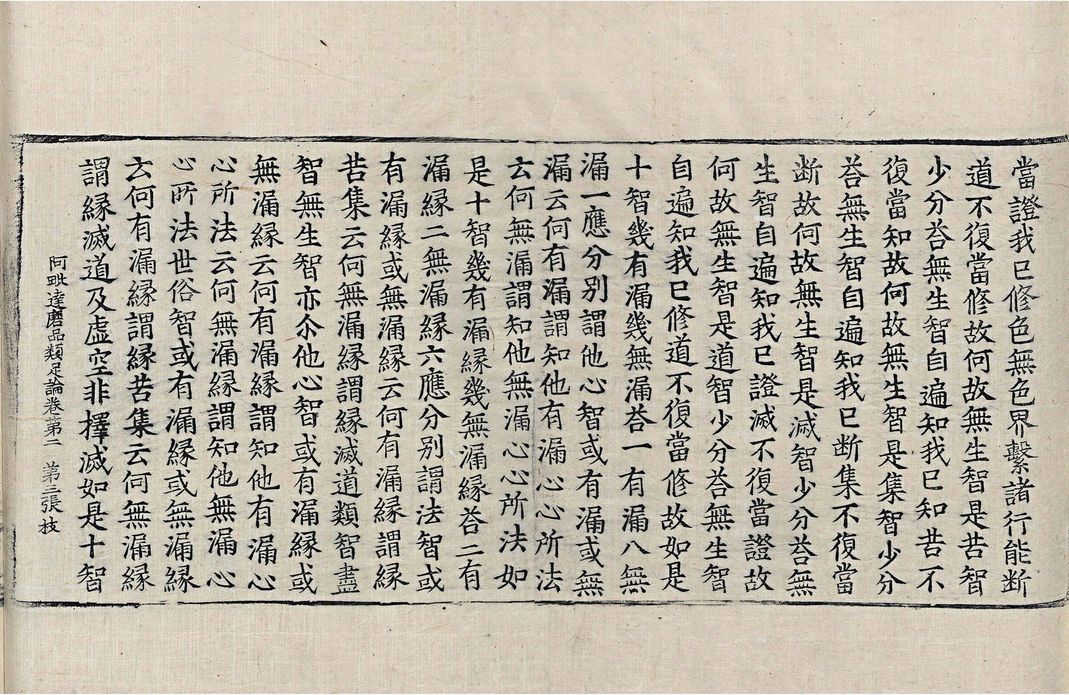 當證我已修色無色界繫諸行能断
道不復當修故何故無生智是苦智
少分荅無生智自遍知我已知苦不
復當知故何故無生智是集智少分
荅無生智自遍知我已断集不復當
断故何故無生智是滅智少分荅無
生智自遍知我已證滅不復當證故
何故無生智是道智少分荅無生智
自遍知我已修道不復當修故如是
十智幾有漏幾無漏荅一有漏八無
漏一應分別謂他心智或有漏或無
漏云何有漏謂知他有漏心心所法
云何無漏謂知他無漏心心所法如
是十智幾有漏緣幾無漏緣荅二有
漏緣二無漏緣六應分別謂法智或
有漏緣或無漏緣云何有漏緣謂緣
苦集云何無漏緣謂緣滅道類智盡
智無生智亦尒他心智或有漏緣或
無漏緣云何有漏緣謂知他有漏心
心所法云何無漏緣謂知他無漏心
心所法世俗智或有漏緣或無漏緣
云何有漏緣謂緣苦集云何無漏緣
謂緣滅道及虛空非擇滅如是十智
阿毗達磨品類足論卷第二 第三張 枝